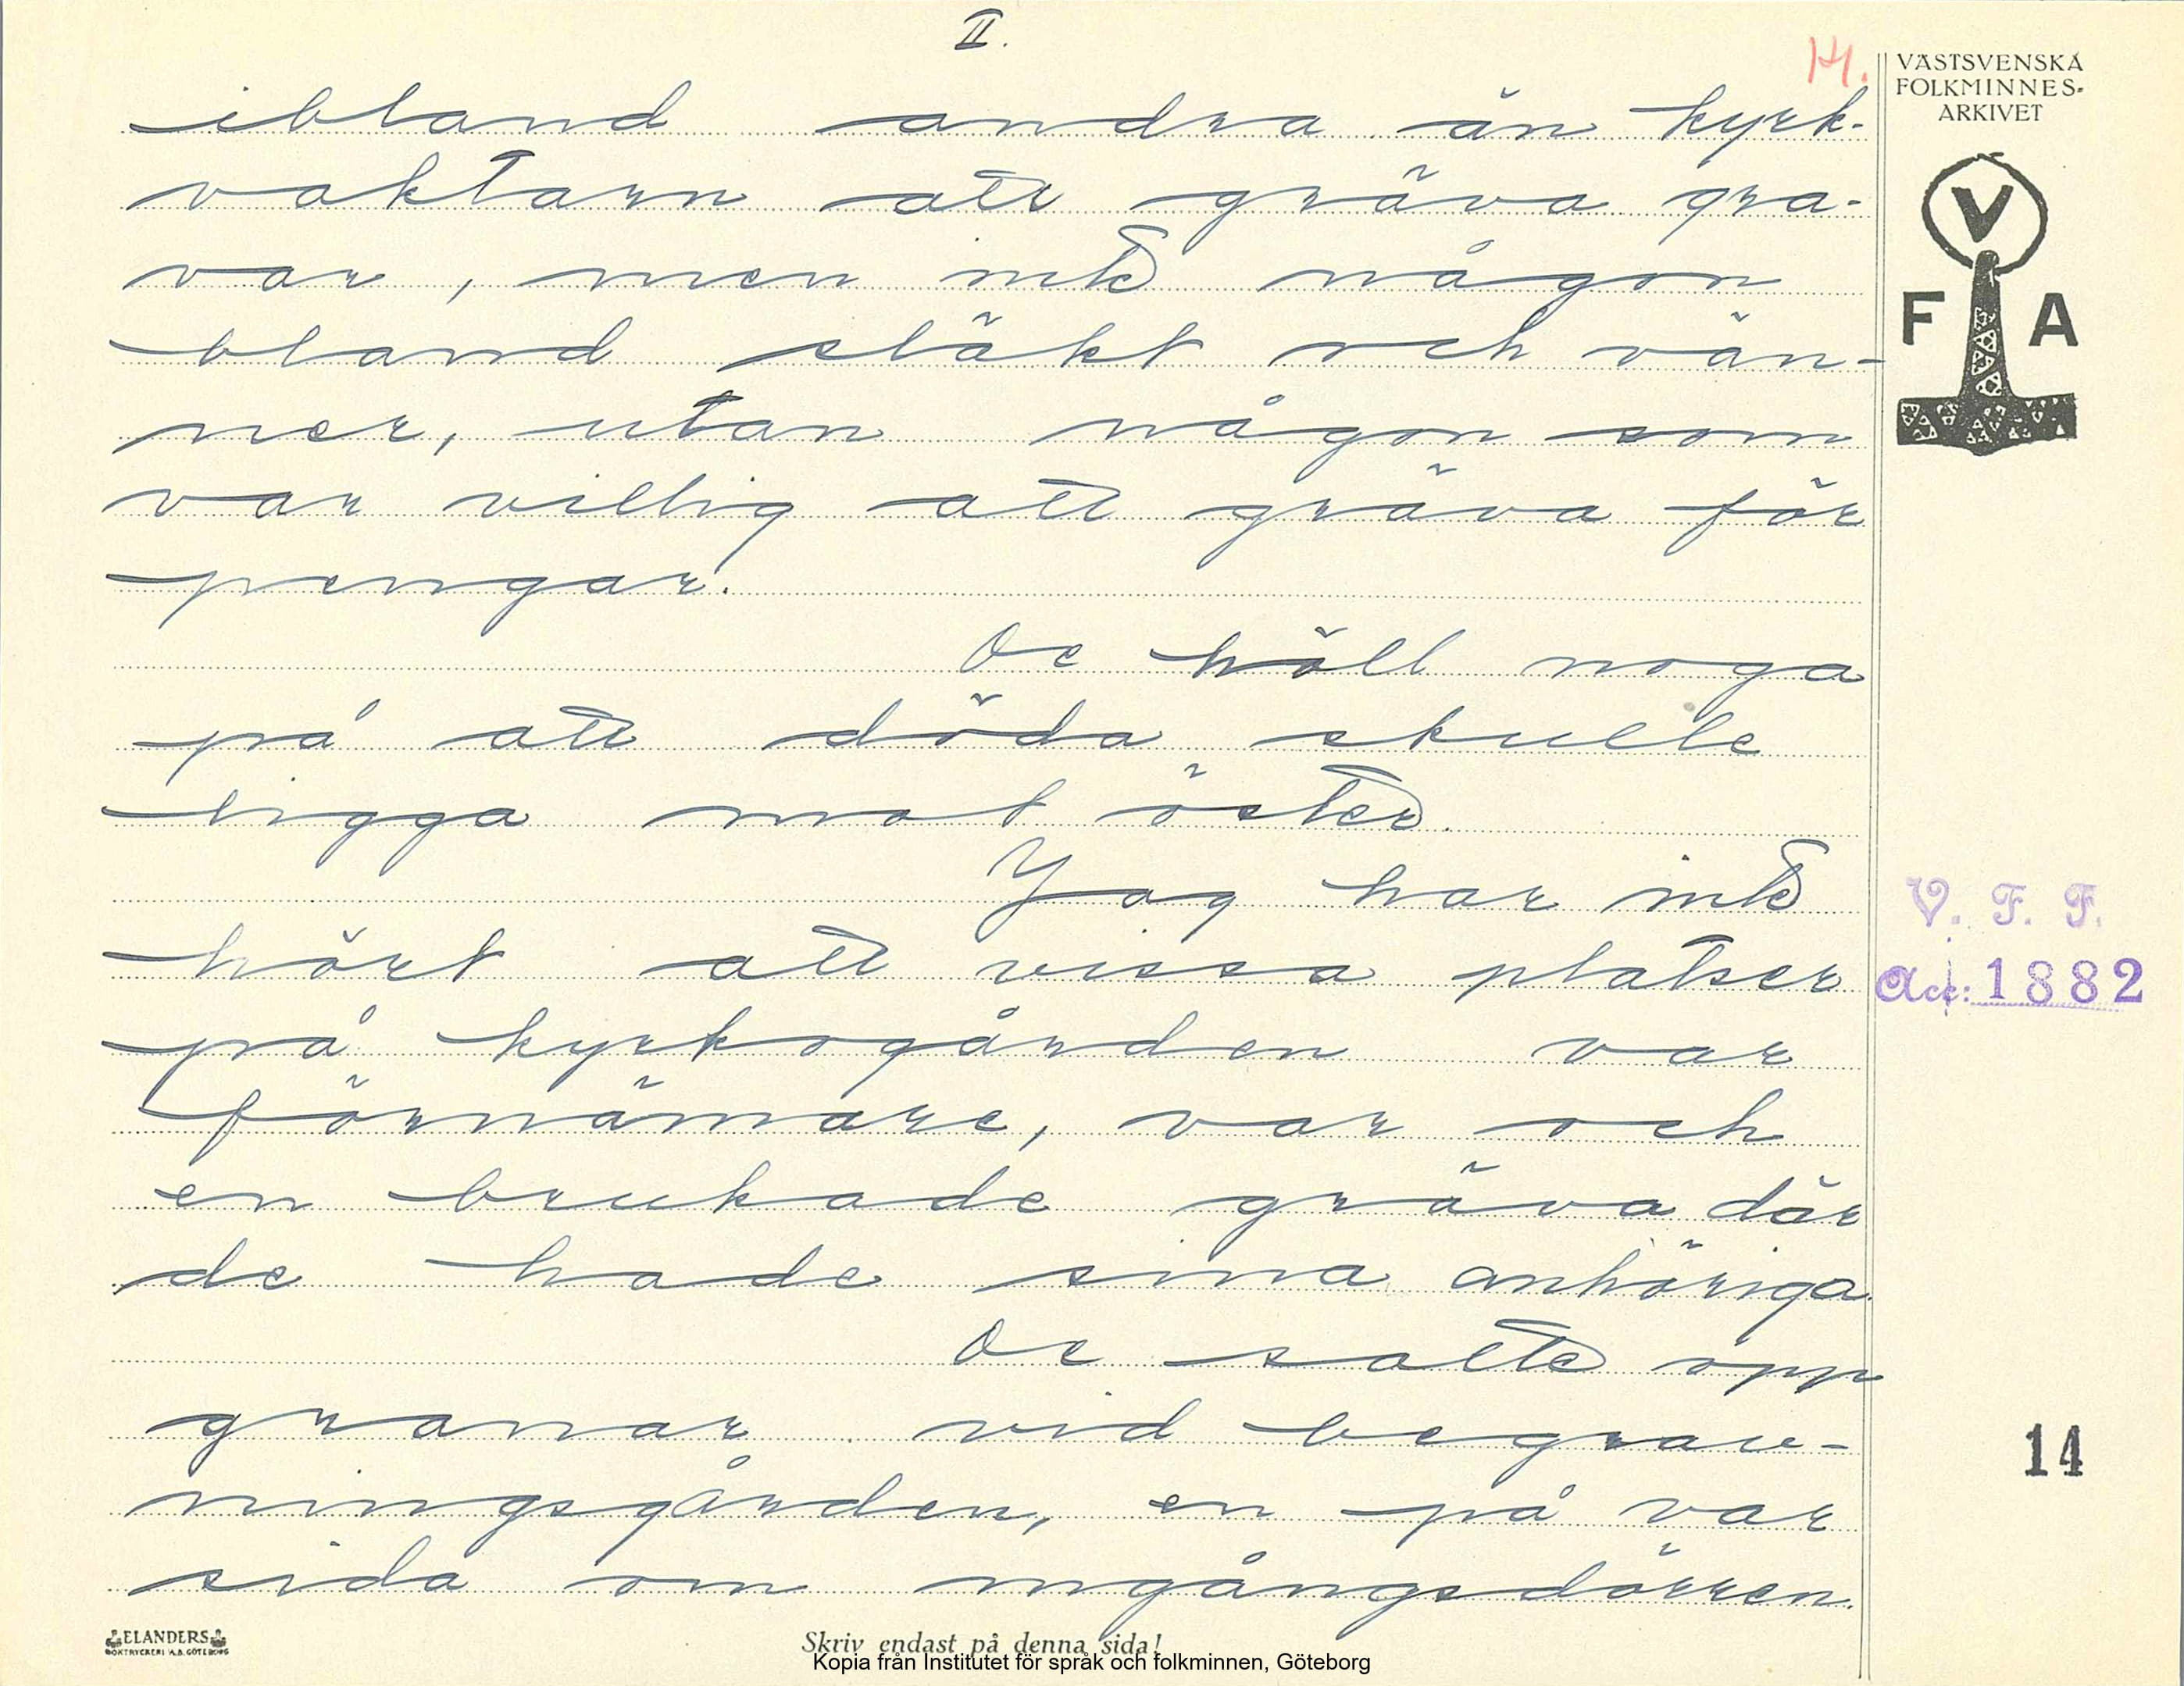 II.
14.
VÄSTSVENSKA
FOLKMINNES-
ARKIVET
V
F A
ibland andra än kyrk-
vaktarn att gräva gra-
var, men inte någon
bland släkt och vän-
ner, utan någon som
var villig att gräva för
pengar.
De höll noga
på att döda skulle
ligga mot öster.
Jag har inte
hört att vissa platser
på kyrkogården var
förnämare, var och
en brukade gräva där
de hade sina anhöriga.
De satte opp
granar vid begrav-
ningsgården, en på var
sida om ingångsdörren.
V. F. F.
Acc: 1882
14
ELANDERS
BOKTRYCKERI A.B. GÖTEBORG
Skriv endast på denna sida!
Kopia från Institutet för språk och folkminnen, Göteborg